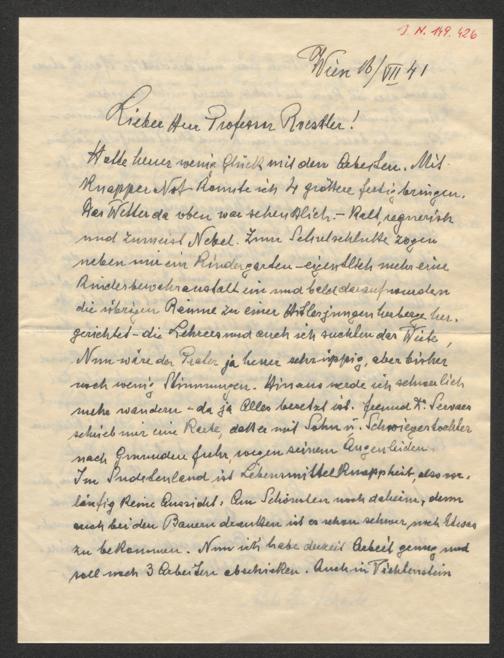 J. N. 149.426
Wien 16/VII 41
Lieber Herr Professor Roessler!
Hatte heuer wenig Glück mit den Arbeiten. Mit
knapper Not konnte ich 4 größere fertigbringen.
Das Wetter da oben war scheußlich – kalt, regnerisch
und zumeist Nebel. Zum Schulschluße zogen
neben mir ein Kindergarten – eigentlich mehr eine
Kinderbewahranstalt ein und bald darauf wurden
die übrigen Räume zu einer Hitlerjungenherberge her-
gerichtet – die Lehrer und auch ich suchten das Weite,
Nun wäre der Prater ja heuer sehr üppig, aber bisher
noch wenig Stimmungen. Hinaus werde ich schwerlich
mehr wandern – da ja alles besetzt ist. Freund Dr. Servaes
schrieb mir eine Karte, daß er mit Sohn u. Schwiegertochter
nach Gmunden fuhr wegen seinem Augenleiden.
Im Sudetenland ist Lebensmittelknappheit, also vor-
läufig keine Aussicht. Am Schönsten noch daheim, denn
auch bei den Bauern draußen ist es schon schwer, noch Etwas
zu bekommen. Nun ich habe derzeit Arbeit genug und
soll noch 3 Arbeiten abschicken. Auch in Vichtenstein